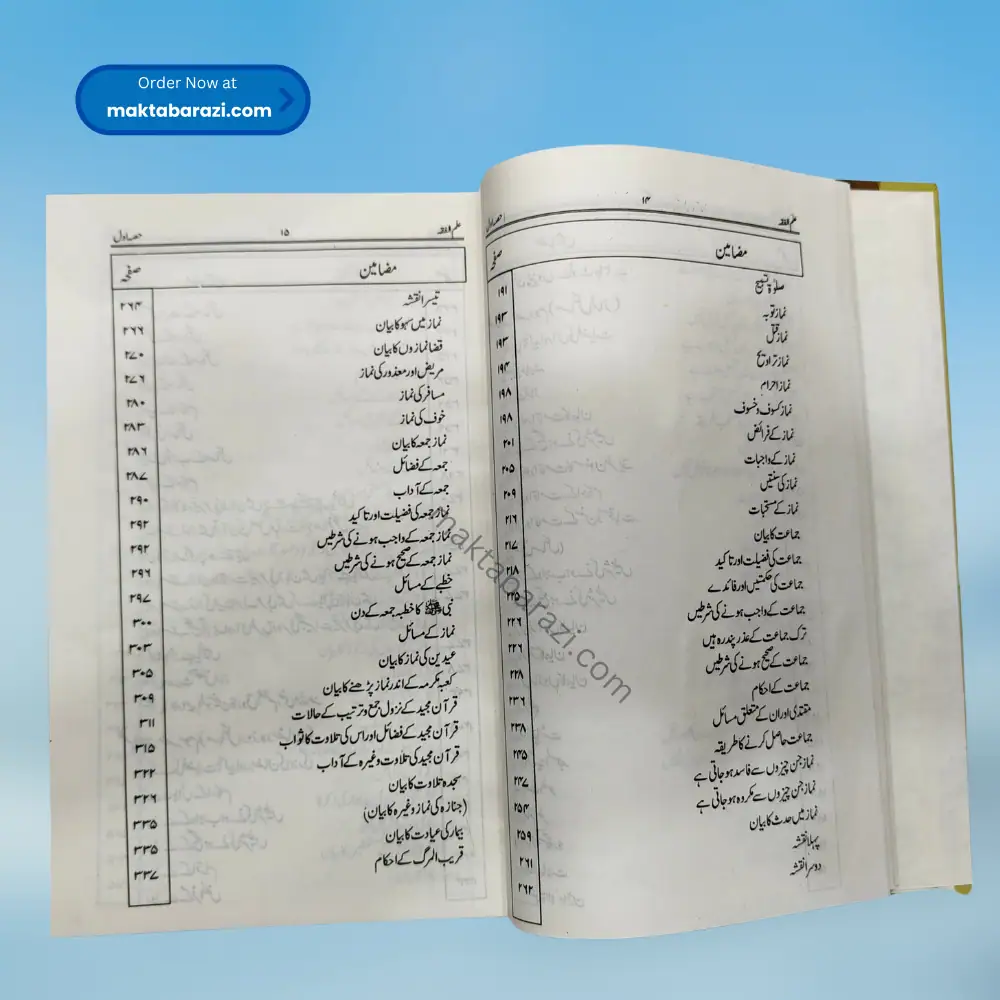 Order Now at
maktabarazi.com
علم الفقہ ۱۴ حصہ اول
مضامین صفحہ
صلوٰۃ تسبیح ۱۹۱
نماز توبہ ۱۹۳
نماز قتل ۱۹۳
نماز تراویح ۱۹۴
نماز احرام ۱۹۸
نماز کسوف و خسوف ۱۹۸
نماز کے فرائض ۲۰۱
نماز کے واجبات ۲۰۵
نماز کی سنتیں ۲۰۹
نماز کے مستحبات ۲۱۶
جماعت کا بیان ۲۱۷
جماعت کی فضیلت اور تاکید ۲۱۸
جماعت کی حکمتیں اور فائدے ۲۲۵
جماعت کے واجب ہونے کی شرطیں ۲۲۶
ترک جماعت کے عذر پندرہ ہیں ۲۲۶
جماعت کے صحیح ہونے کی شرطیں ۲۲۸
جماعت کے احکام ۲۳۶
مقتدی اور ان کے متعلق مسائل ۲۳۸
جماعت حاصل کرنے کا طریقہ ۲۴۵
نماز جن چیزوں سے فاسد ہو جاتی ہے ۲۴۷
نماز جن چیزوں سے مکروہ ہو جاتی ہے ۲۵۴
نماز میں حدث کا بیان ۲۵۹
پہلا نقشہ ۲۶۱
دوسرا نقشہ ۲۶۲
علم الفقہ ۱۵ حصہ اول
مضامین صفحہ
تیسرا نقشہ ۲۶۴
نماز میں سہو کا بیان ۲۶۶
قضا نمازوں کا بیان ۲۷۰
مریض اور معذور کی نماز ۲۷۶
مسافر کی نماز ۲۸۰
خوف کی نماز ۲۸۳
نماز جمعہ کا بیان ۲۸۶
جمعہ کے فضائل ۲۸۷
جمعہ کے آداب ۲۹۰
نماز جمعہ کی فضیلت اور تاکید ۲۹۲
نماز جمعہ کے واجب ہونے کی شرطیں ۲۹۲
نماز جمعہ کے صحیح ہونے کی شرطیں ۲۹۶
خطبے کے مسائل ۲۹۷
نبی ﷺ کا خطبہ جمعہ کے دن ۳۰۰
نماز کے مسائل ۳۰۳
عیدین کی نماز کا بیان ۳۰۵
کعبہ مکرمہ کے اندر نماز پڑھنے کا بیان ۳۰۹
قرآن مجید کے نزول جمع و ترتیب کے حالات ۳۱۱
قرآن مجید کے فضائل اور اس کی تلاوت کا ثواب ۳۱۵
قرآن مجید کی تلاوت وغیرہ کے آداب ۳۲۲
سجدہ تلاوت کا بیان ۳۲۶
(جنازہ کی نماز وغیرہ کا بیان) ۳۳۵
بیمار کی عیادت کا بیان ۳۳۵
قریب المرگ کے احکام ۳۳۷
maktabarazi.com